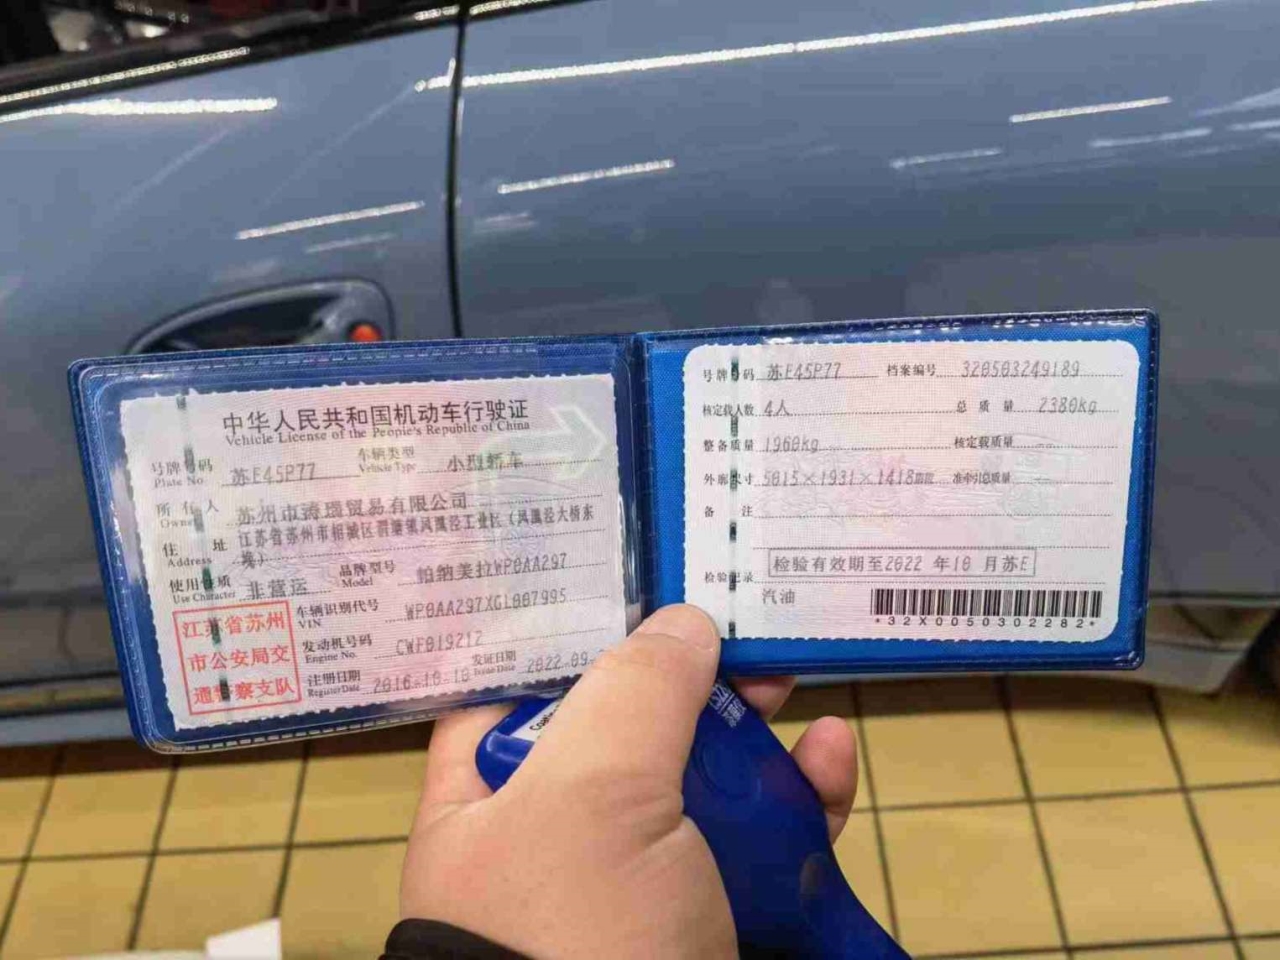 中华人民共和国机动车行驶证
Vehicle License of the People's Republic of China
号牌号码 苏E45P77 车辆类型 小型轿车
Plate No. Vehicle Type
所有人 苏州市海瑞贸易有限公司
Owner
住址 江苏省苏州市相城区渭塘镇凤凰泾工业区（凤凰泾大桥东
Address
使用性质 非营运 品牌型号 帕纳美拉WP0AA297
Use Character Model
江苏省苏州
市公安局交
通警察支队
车辆识别代号 WP0AA297XGL007995
VIN
发动机号码 CWF019212
Engine No.
注册日期 2016-10-18 发证日期 2022-09-
Register Date Issue Date
号牌号码 苏E45P77 档案编号 320503249189
核定载人数 4人 总质量 2380kg
整备质量 1960kg 核定载质量 --
外廓尺寸 5015×1931×1418mm 准牵引总质量 --
备注
检验记录 检验有效期至2022 年10 月苏E
汽油
*32X0050302282*